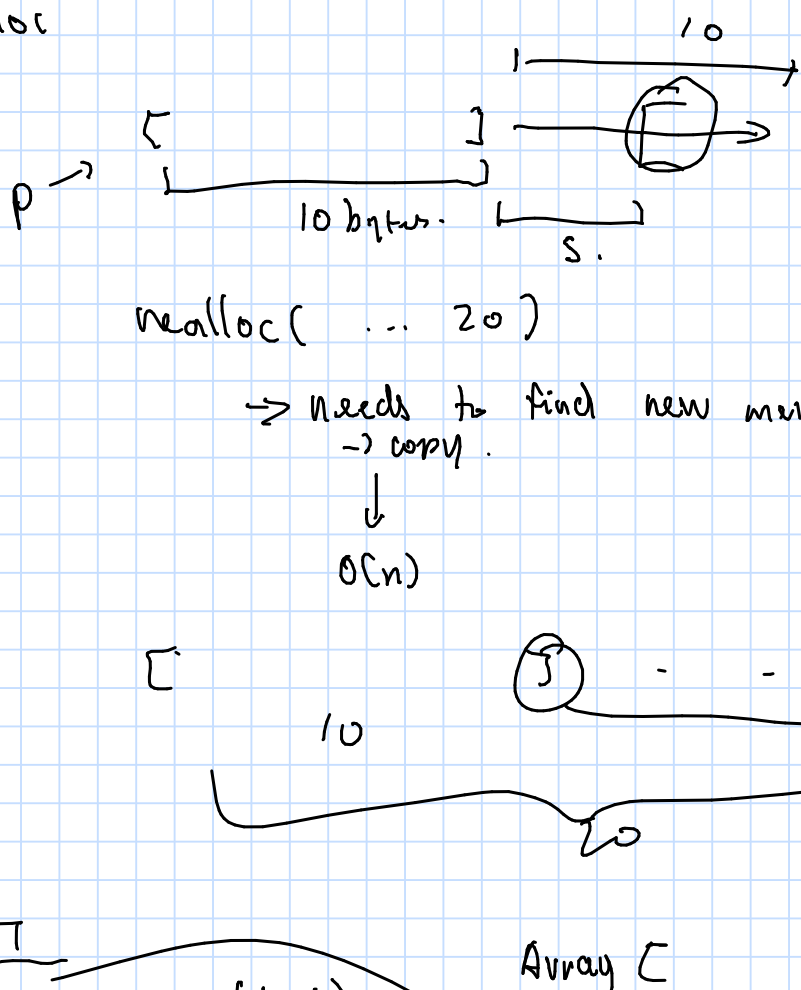 10
[ ] [
p →
10 bytes.
5.
realloc( ... 20)
→ needs to find new
→ copy.
↓
O(n)
[ ] - -
10
20
Array [